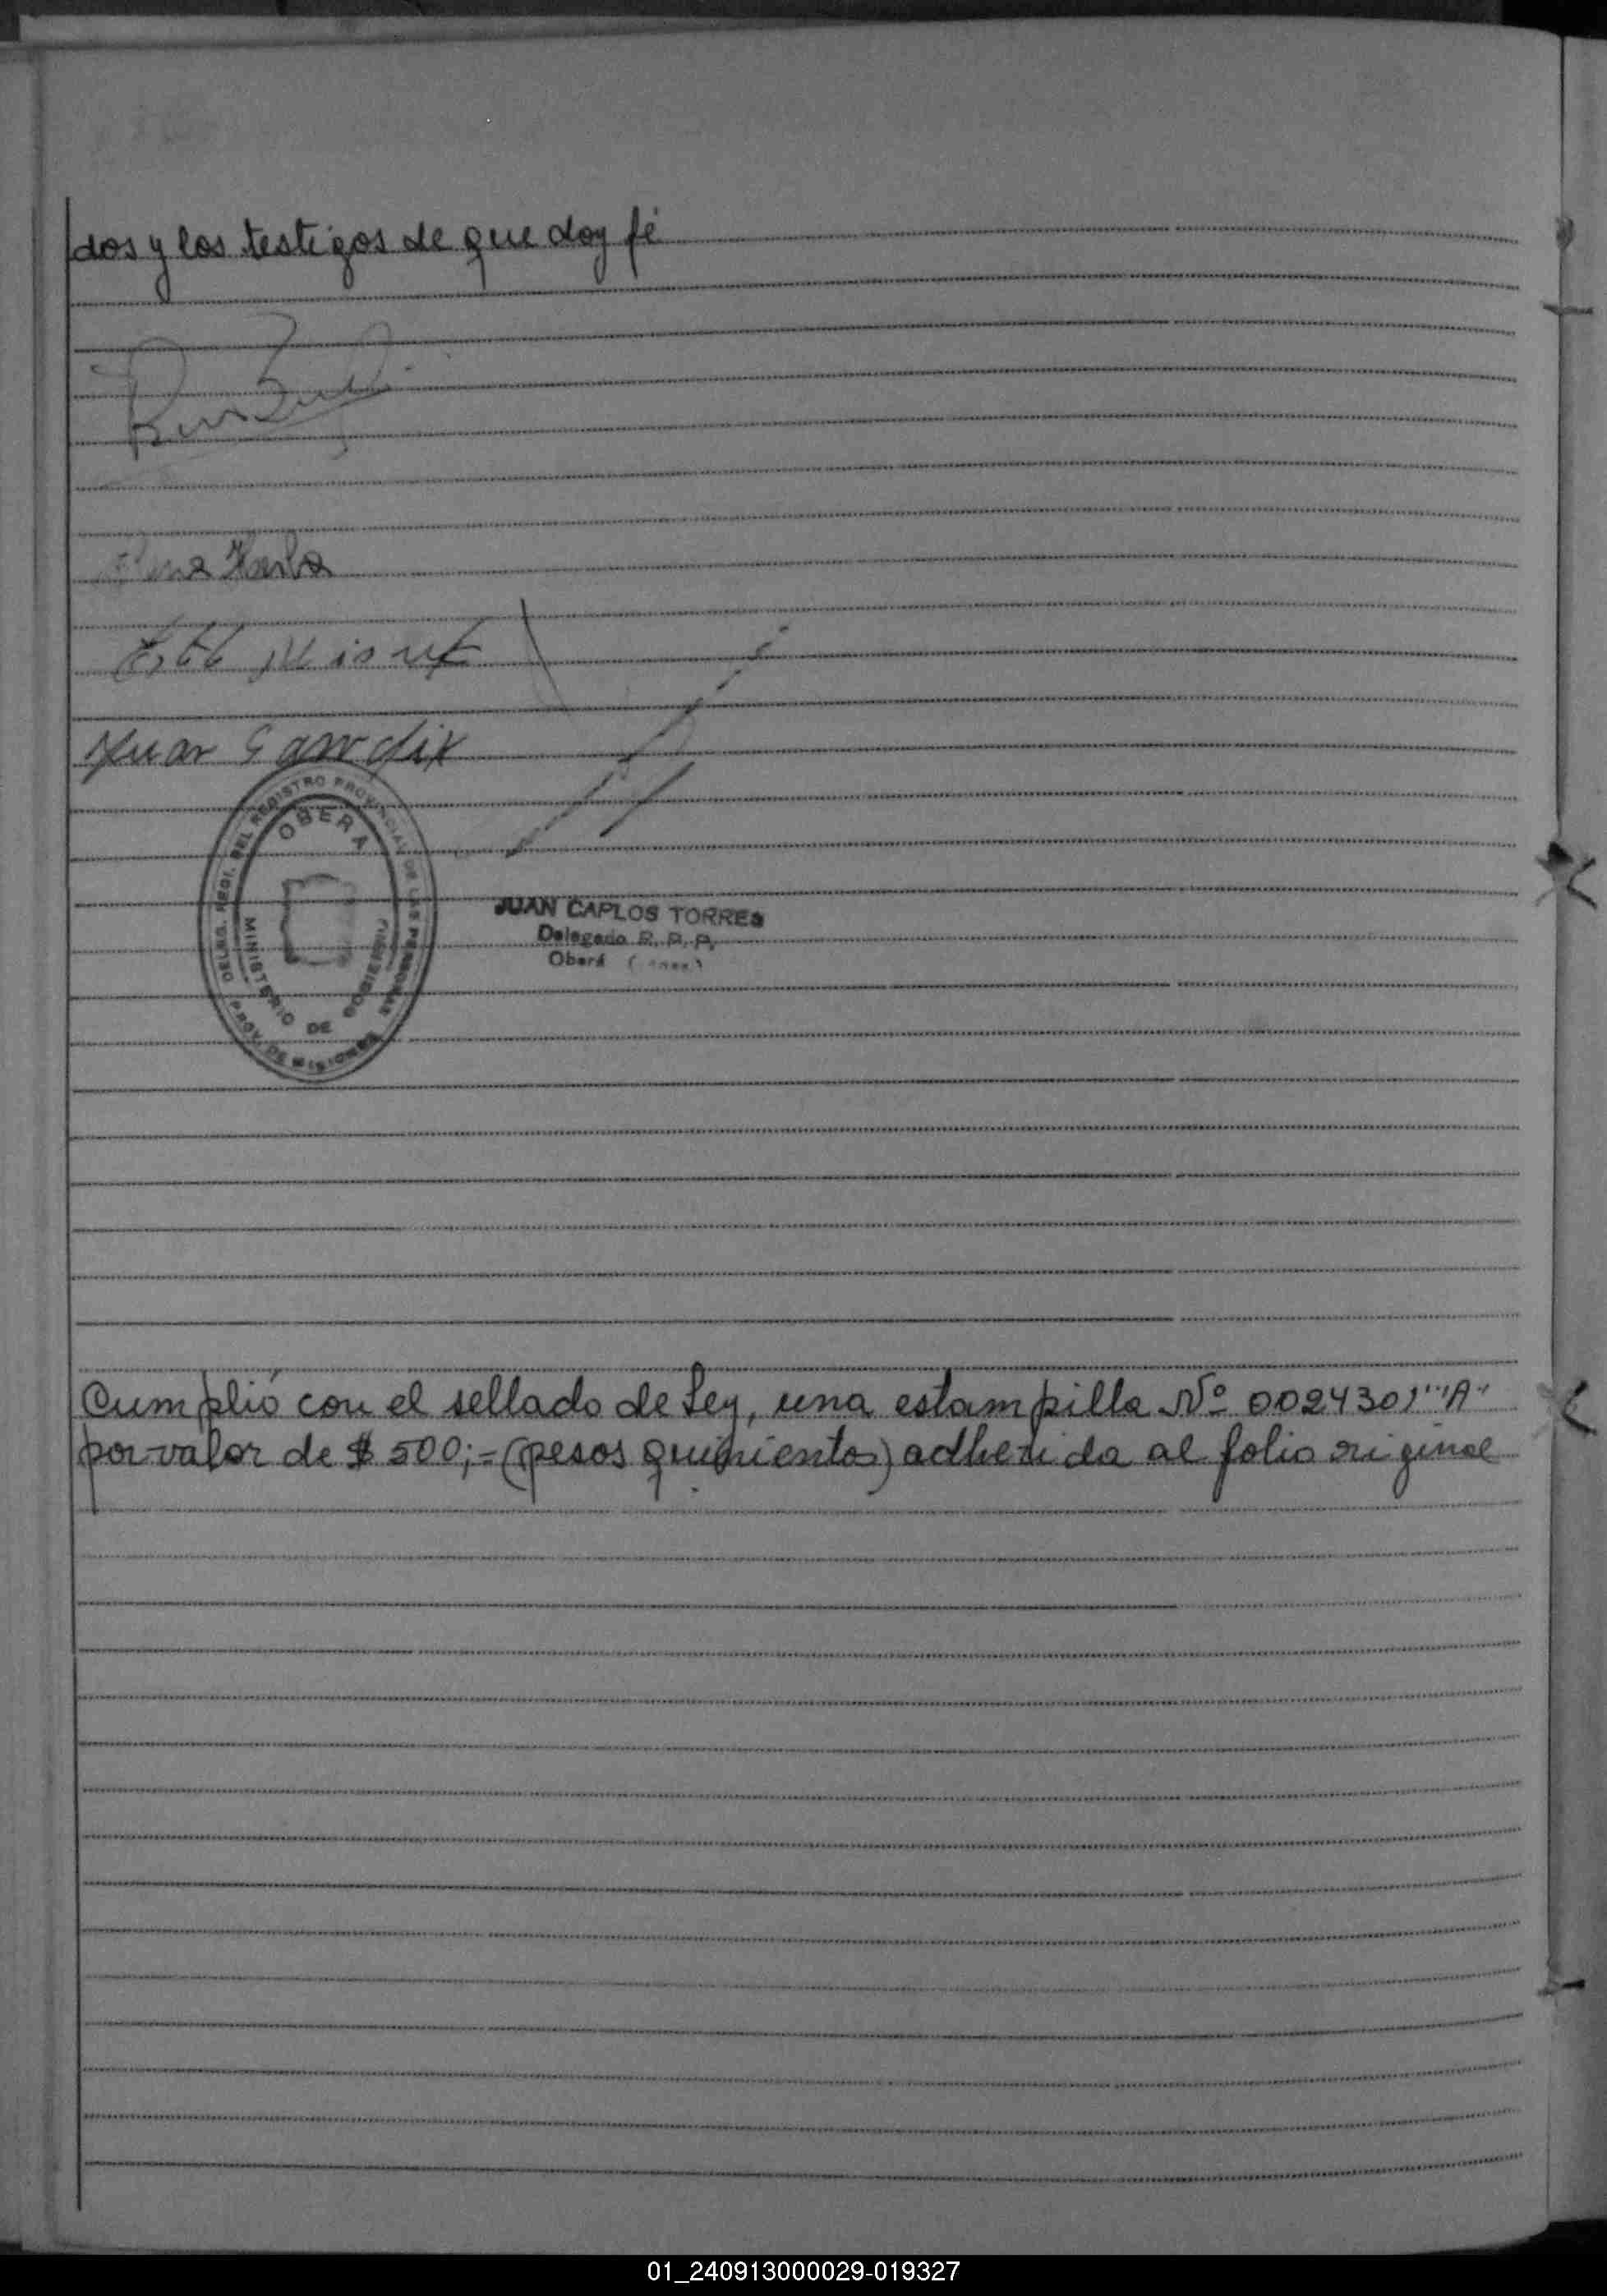 dos y los testigos de que doy fé
Juan
DELEG. REGI. DEL REGISTRO PROVINCIAL DE LAS PERSONAS
OBERA
MINISTERIO DE GOBIERNO
PROV. DE MISIONES
JUAN CARLOS TORRES
Delegado R. P. P.
Oberá
Cumplió con el sellado de Ley, una estampilla Nº 0024301 "A"
por valor de $ 500;= (pesos quinientos) adherida al folio original
01_240913000029-019327